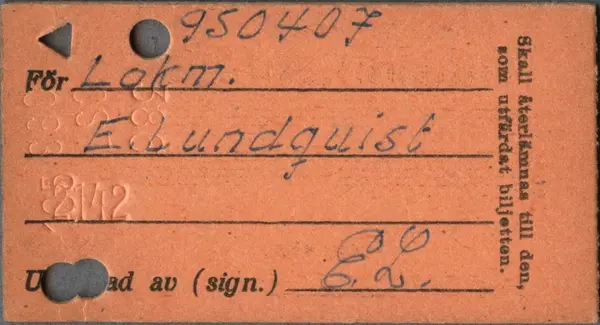 950407
För Lokm.
E. Lundquist
2142
ad av (sign.) E.L.
Skall återlämnas till den,
som utfärdat biljetten.